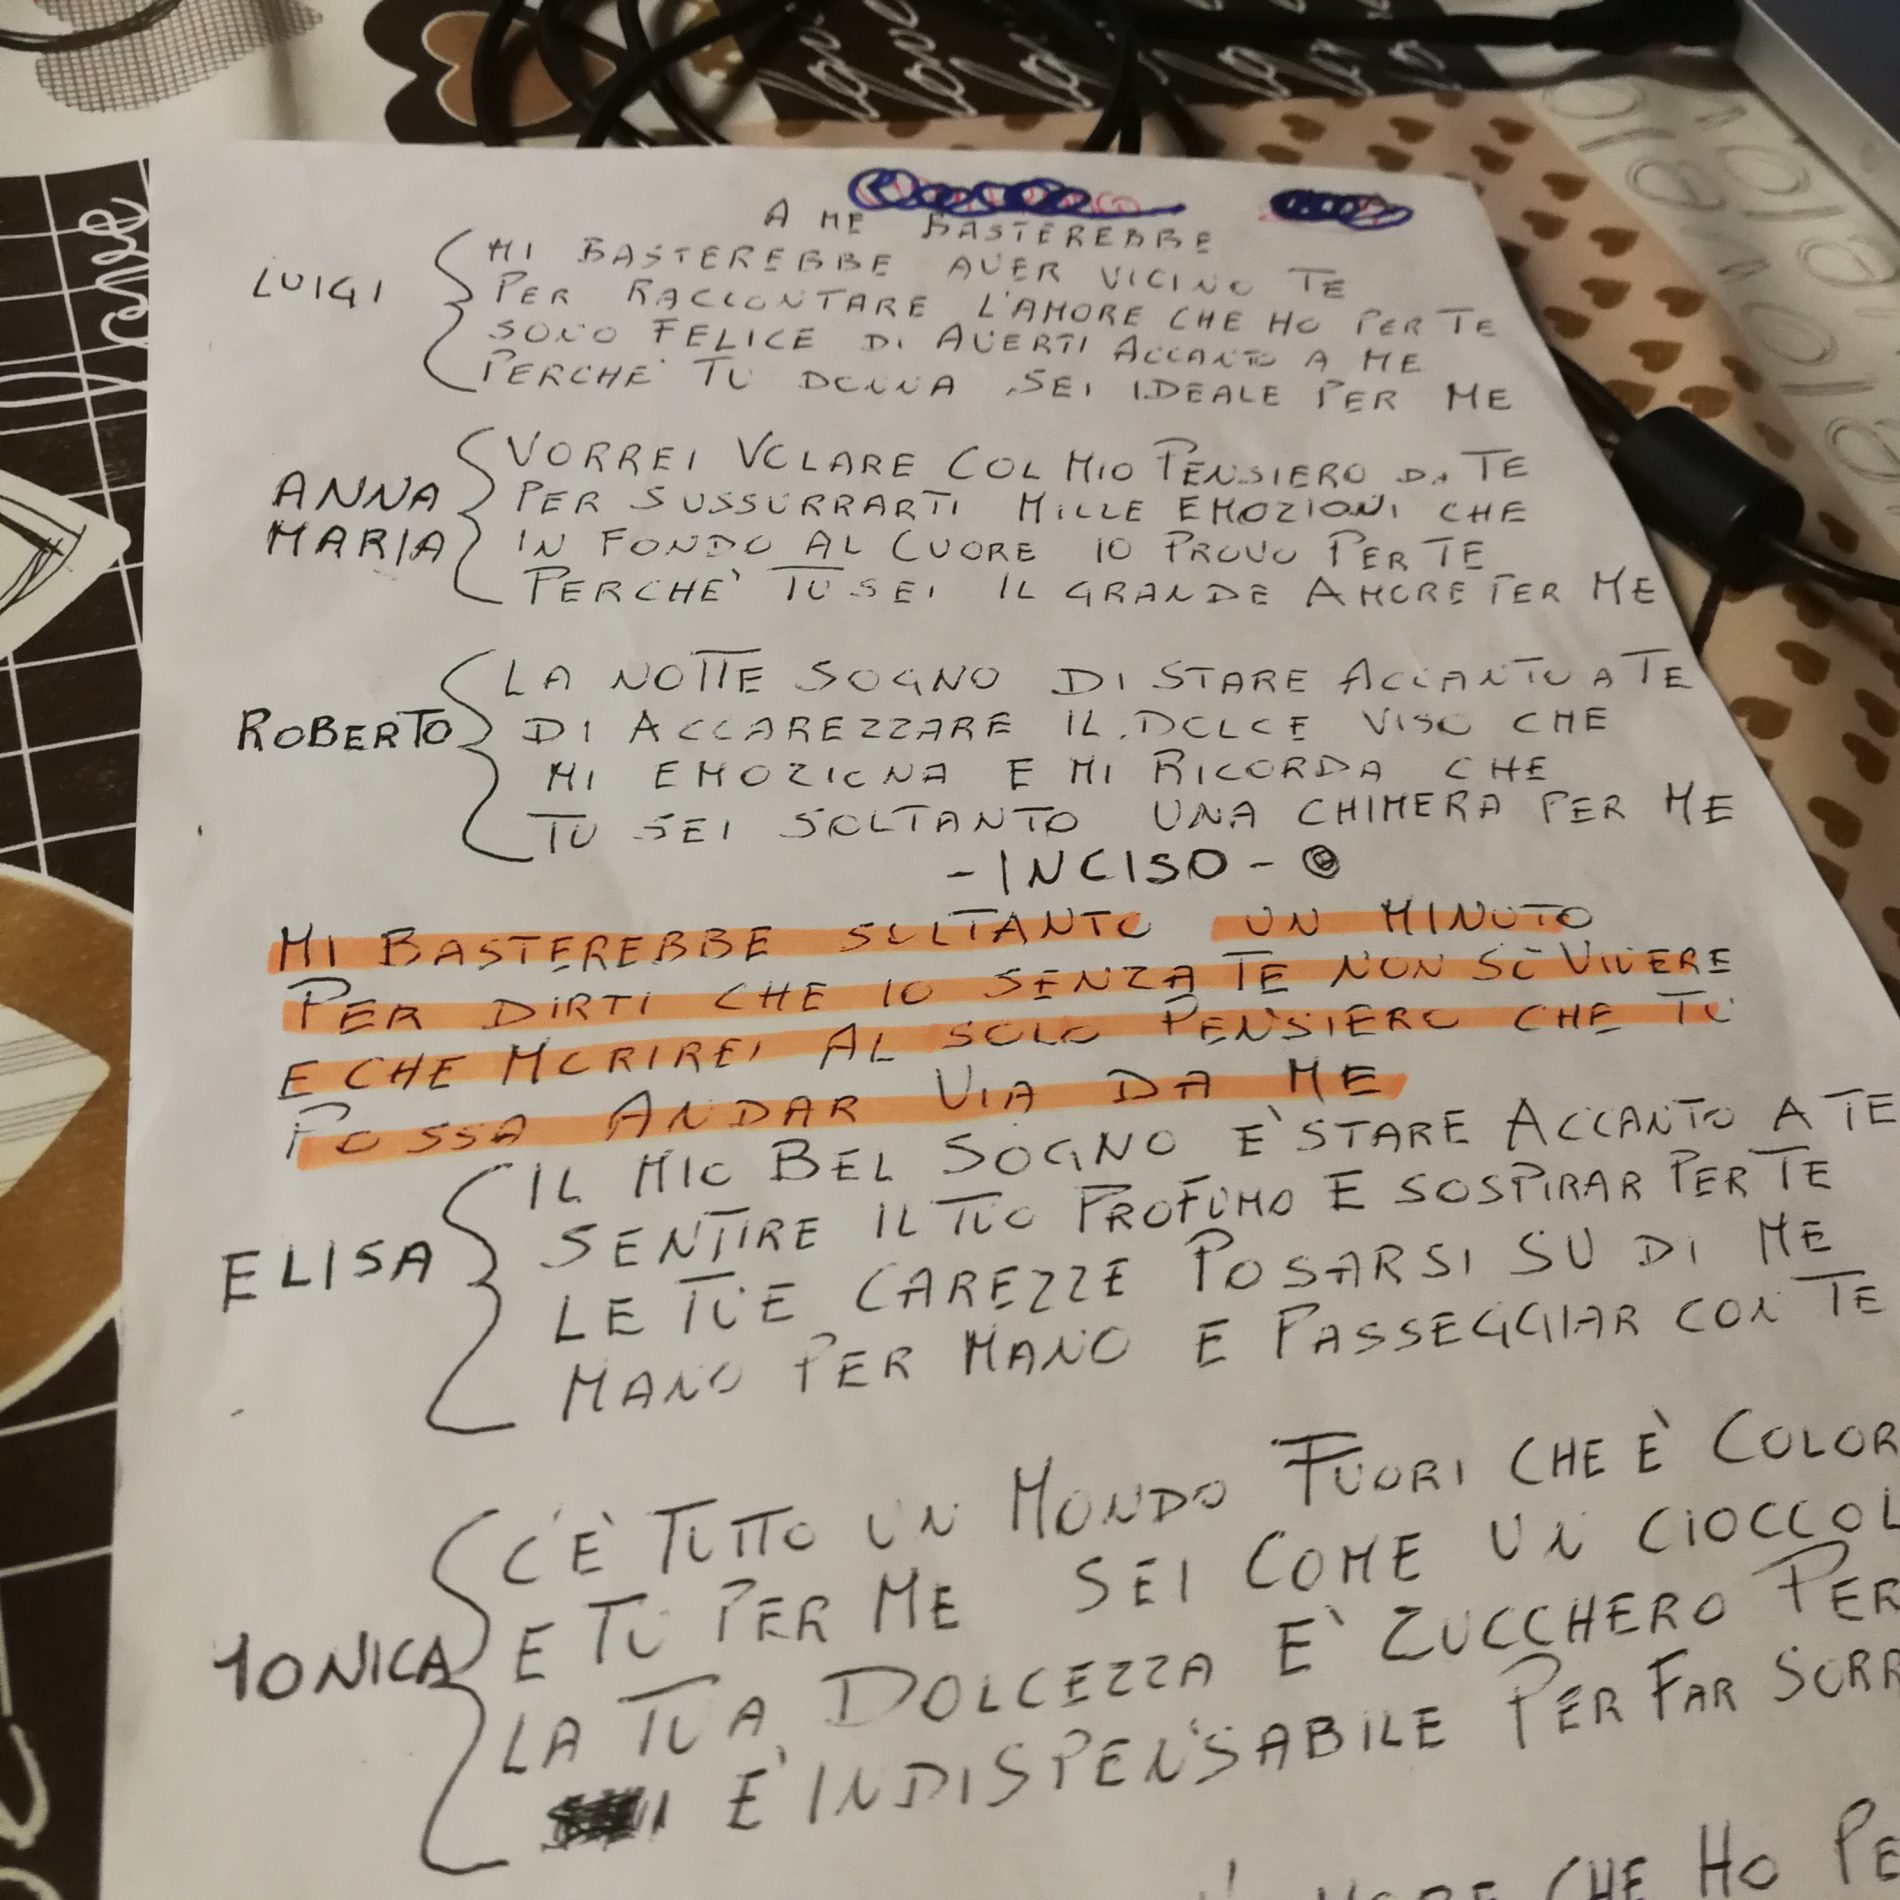 A ME BASTEREBBE
LUIGI
MI BASTEREBBE AVER VICINO TE
PER RACCONTARE L'AMORE CHE HO PER TE
SONO FELICE DI AVERTI ACCANTO A ME
PERCHE' TU DONNA SEI IDEALE PER ME
ANNA
MARIA
VORREI VOLARE COL MIO PENSIERO DA TE
PER SUSSURRARTI MILLE EMOZIONI CHE
IN FONDO AL CUORE IO PROVO PER TE
PERCHE' TU SEI IL GRANDE AMORE PER ME
ROBERTO
LA NOTTE SOGNO DI STARE ACCANTO A TE
DI ACCAREZZARE IL DOLCE VISO CHE
MI EMOZIONA E MI RICORDA CHE
TU SEI SOLTANTO UNA CHIMERA PER ME
- INCISO -
MI BASTEREBBE SOLTANTO UN MINUTO
PER DIRTI CHE IO SENZA TE NON SO VIVERE
E CHE MORIREI AL SOLO PENSIERO CHE TU
POSSA ANDAR VIA DA ME
ELISA
IL MIO BEL SOGNO E' STARE ACCANTO A TE
SENTIRE IL TUO PROFUMO E SOSPIRAR PER TE
LE TUE CAREZZE POSARSI SU DI ME
MANO PER MANO E PASSEGGIAR CON TE
MONICA
C'È TUTTO UN MONDO FUORI CHE È COLOR
E TU PER ME SEI COME UN CIOCCOL
LA TUA DOLCEZZA E' ZUCCHERO PER
E' INDISPENSABILE PER FAR SORR
CHE HO PE
love